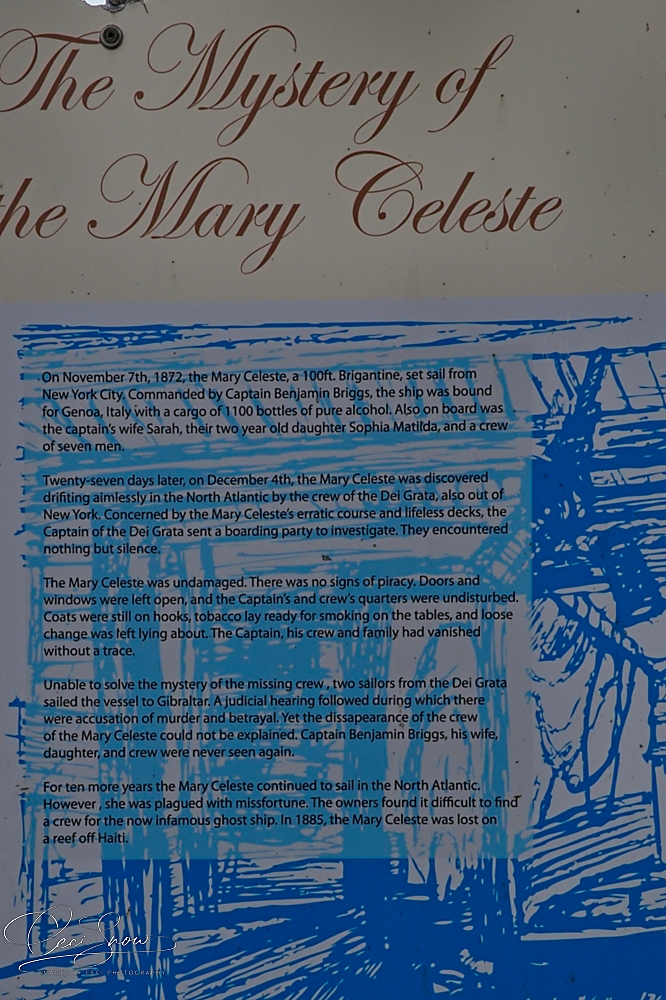 The Mystery of
the Mary Celeste
On November 7th, 1872, the Mary Celeste, a 100ft. Brigantine, set sail from
New York City. Commanded by Captain Benjamin Briggs, the ship was bound
for Genoa, Italy with a cargo of 1100 bottles of pure alcohol. Also on board was
the captain's wife Sarah, their two year old daughter Sophia Matilda, and a crew
of seven men.
Twenty-seven days later, on December 4th, the Mary Celeste was discovered
drifiting aimlessly in the North Atlantic by the crew of the Dei Grata, also out of
New York. Concerned by the Mary Celeste's erratic course and lifeless decks, the
Captain of the Dei Grata sent a boarding party to investigate. They encountered
nothing but silence.
The Mary Celeste was undamaged. There was no signs of piracy. Doors and
windows were left open, and the Captain's and crew's quarters were undisturbed.
Coats were still on hooks, tobacco lay ready for smoking on the tables, and loose
change was left lying about. The Captain, his crew and family had vanished
without a trace.
Unable to solve the mystery of the missing crew , two sailors from the Dei Grata
sailed the vessel to Gibraltar. A judicial hearing followed during which there
were accusation of murder and betrayal. Yet the dissapearance of the crew
of the Mary Celeste could not be explained. Captain Benjamin Briggs, his wife,
daughter, and crew were never seen again.
For ten more years the Mary Celeste continued to sail in the North Atlantic.
However , she was plagued with misfortune. The owners found it difficult to find
a crew for the now infamous ghost ship. In 1885, the Mary Celeste was lost on
a reef off Haiti.
Ceci Snow
CECI PHOTOGRAPHY